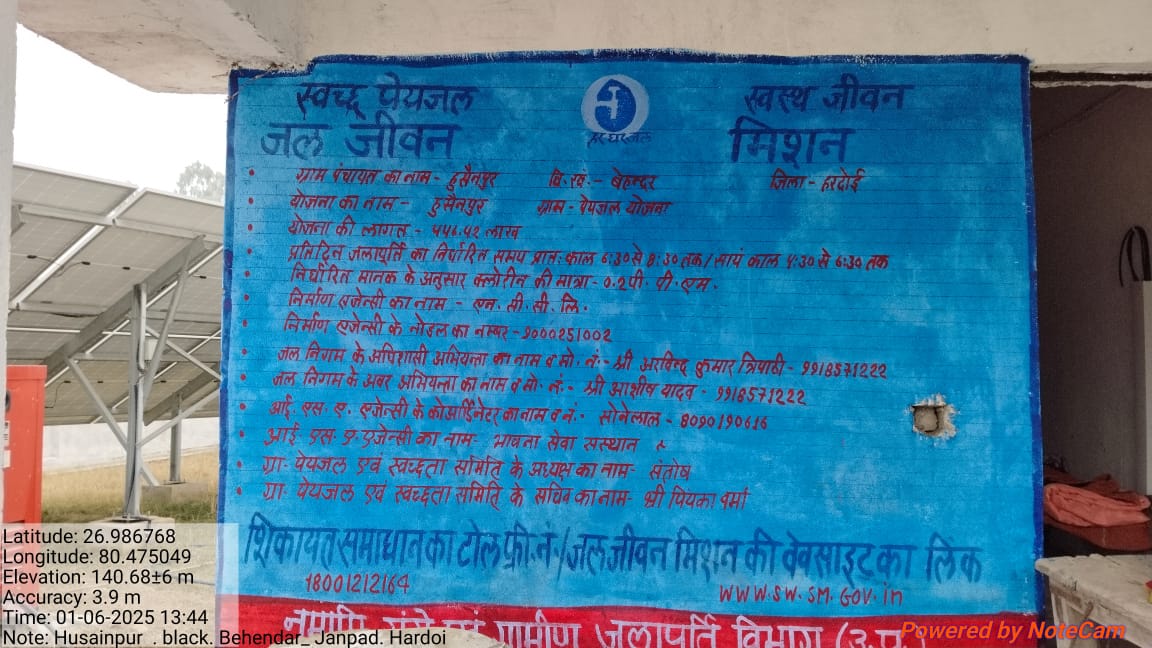 स्वच्छ पेयजल स्वस्थ जीवन
हर घर जल
जल जीवन मिशन
• ग्राम पंचायत का नाम - हुसैनपुर वि.खं. - बेहन्दर जिला - हरदोई
• योजना का नाम - हुसैनपुर ग्राम - पेयजल योजना
• योजना की लागत - ५५६.५२ लाख
• प्रतिदिन जलापूर्ति का निर्धारित समय प्रातः काल 6:30 से 8:30 तक / सायं काल 4:30 से 6:30 तक
• निर्धारित मानक के अनुसार क्लोरीन की मात्रा - 0.2 पी. पी. एम.
• निर्माण एजेन्सी का नाम - एन. सी. सी. लि.
• निर्माण एजेन्सी के नोडल का नम्बर - 9000251002
• जल निगम के अधिशासी अभियन्ता का नाम व मो. नं. - श्री अरविन्द कुमार त्रिपाठी - 9918571222
• जल निगम के अवर अभियन्ता का नाम व मो. नं. - श्री आशीष यादव - 9918571222
• आई. एस. ए. एजेन्सी के कोआर्डिनेटर का नाम व नं. - सोनेलाल - 8090190616
• आई. एस. ए. एजेन्सी का नाम - भावना सेवा संस्थान
• ग्रा. पेयजल एवं स्वच्छता समिति के अध्यक्ष का नाम - संतोष
• ग्रा. पेयजल एवं स्वच्छता समिति के सचिव का नाम - श्री पियंका वर्मा
शिकायत समाधान का टोल फ्री नं. / जल जीवन मिशन की वेबसाइट का लिंक
18001212164 WWW.SW.SM.GOV.in
नमामि गंगे एवं ग्रामीण जलापूर्ति विभाग (उ.प्र.)
Latitude: 26.986768
Longitude: 80.475049
Elevation: 140.68±6 m
Accuracy: 3.9 m
Time: 01-06-2025 13:44
Note: Husainpur . black. Behendar_ Janpad. Hardoi
Powered by NoteCam